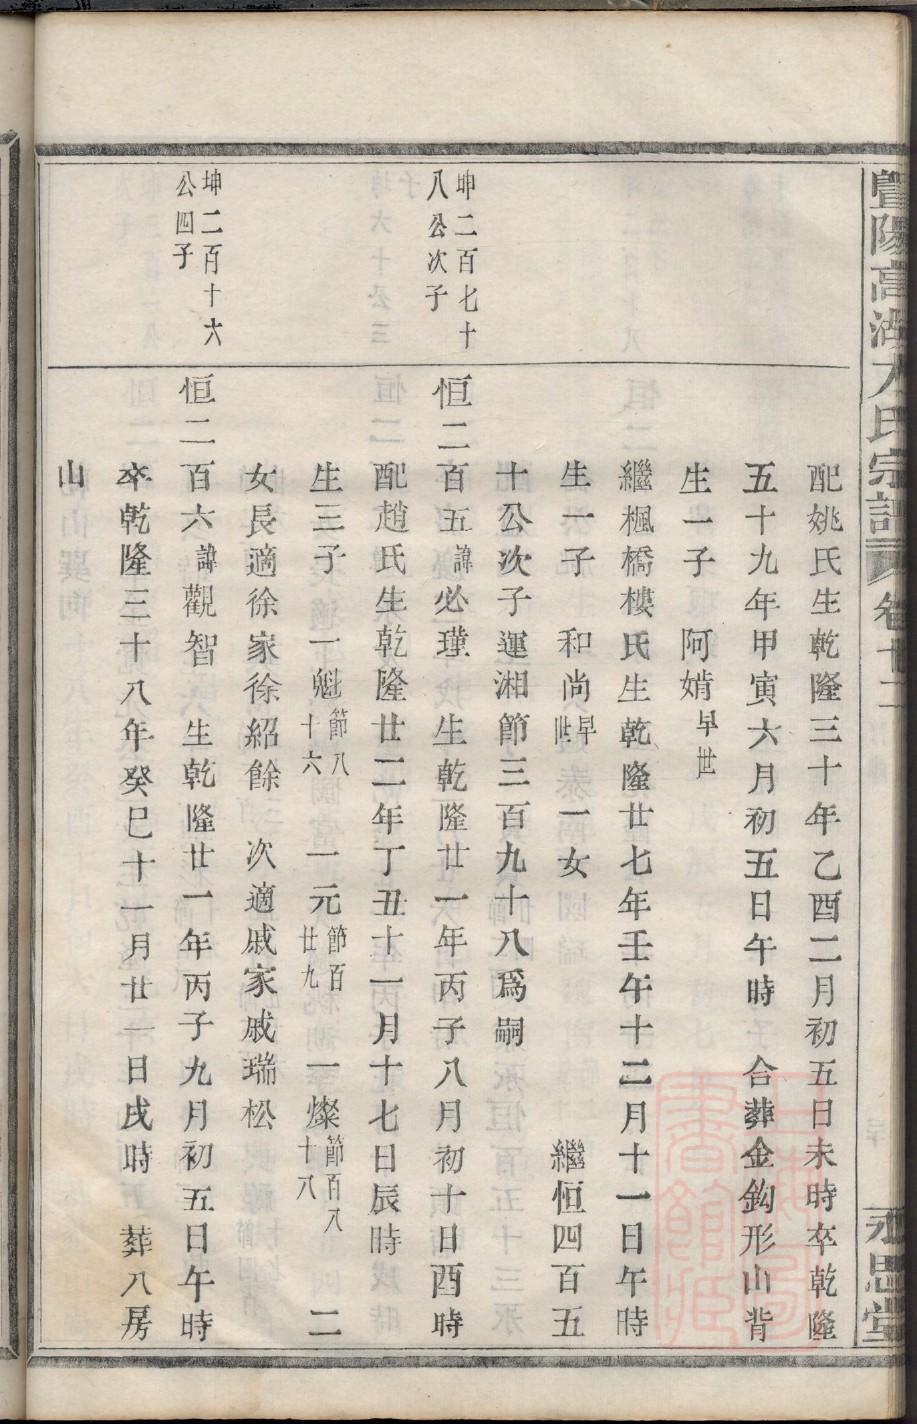 暨陽高湖人氏宗譜 卷十二 永思堂
配姚氏生乾隆三十年乙酉二月初五日未時卒乾隆
五十九年甲寅六月初五日午時 合葬金鈎形山背
生一子 阿婧早世
繼楓橋樓氏生乾隆廿七年壬午十二月十一日午時
生一子 和尚早世 一女 繼恒四百五
十公次子運湘節三百九十八爲嗣
坤二百七十
八公次子
恒二百五諱必瑾 生乾隆廿一年丙子八月初十日酉時
配趙氏生乾隆廿二年丁丑十一月十七日辰時
生三子 一魁節八十六 一元節百廿九 一燦節百八十八 二
女長適徐家徐紹餘 次適戚家戚瑞松
坤二百十六
公四子
恒二百六諱觀智 生乾隆廿一年丙子九月初五日午時
卒乾隆三十八年癸巳十一月廿一日戌時 葬八房
山